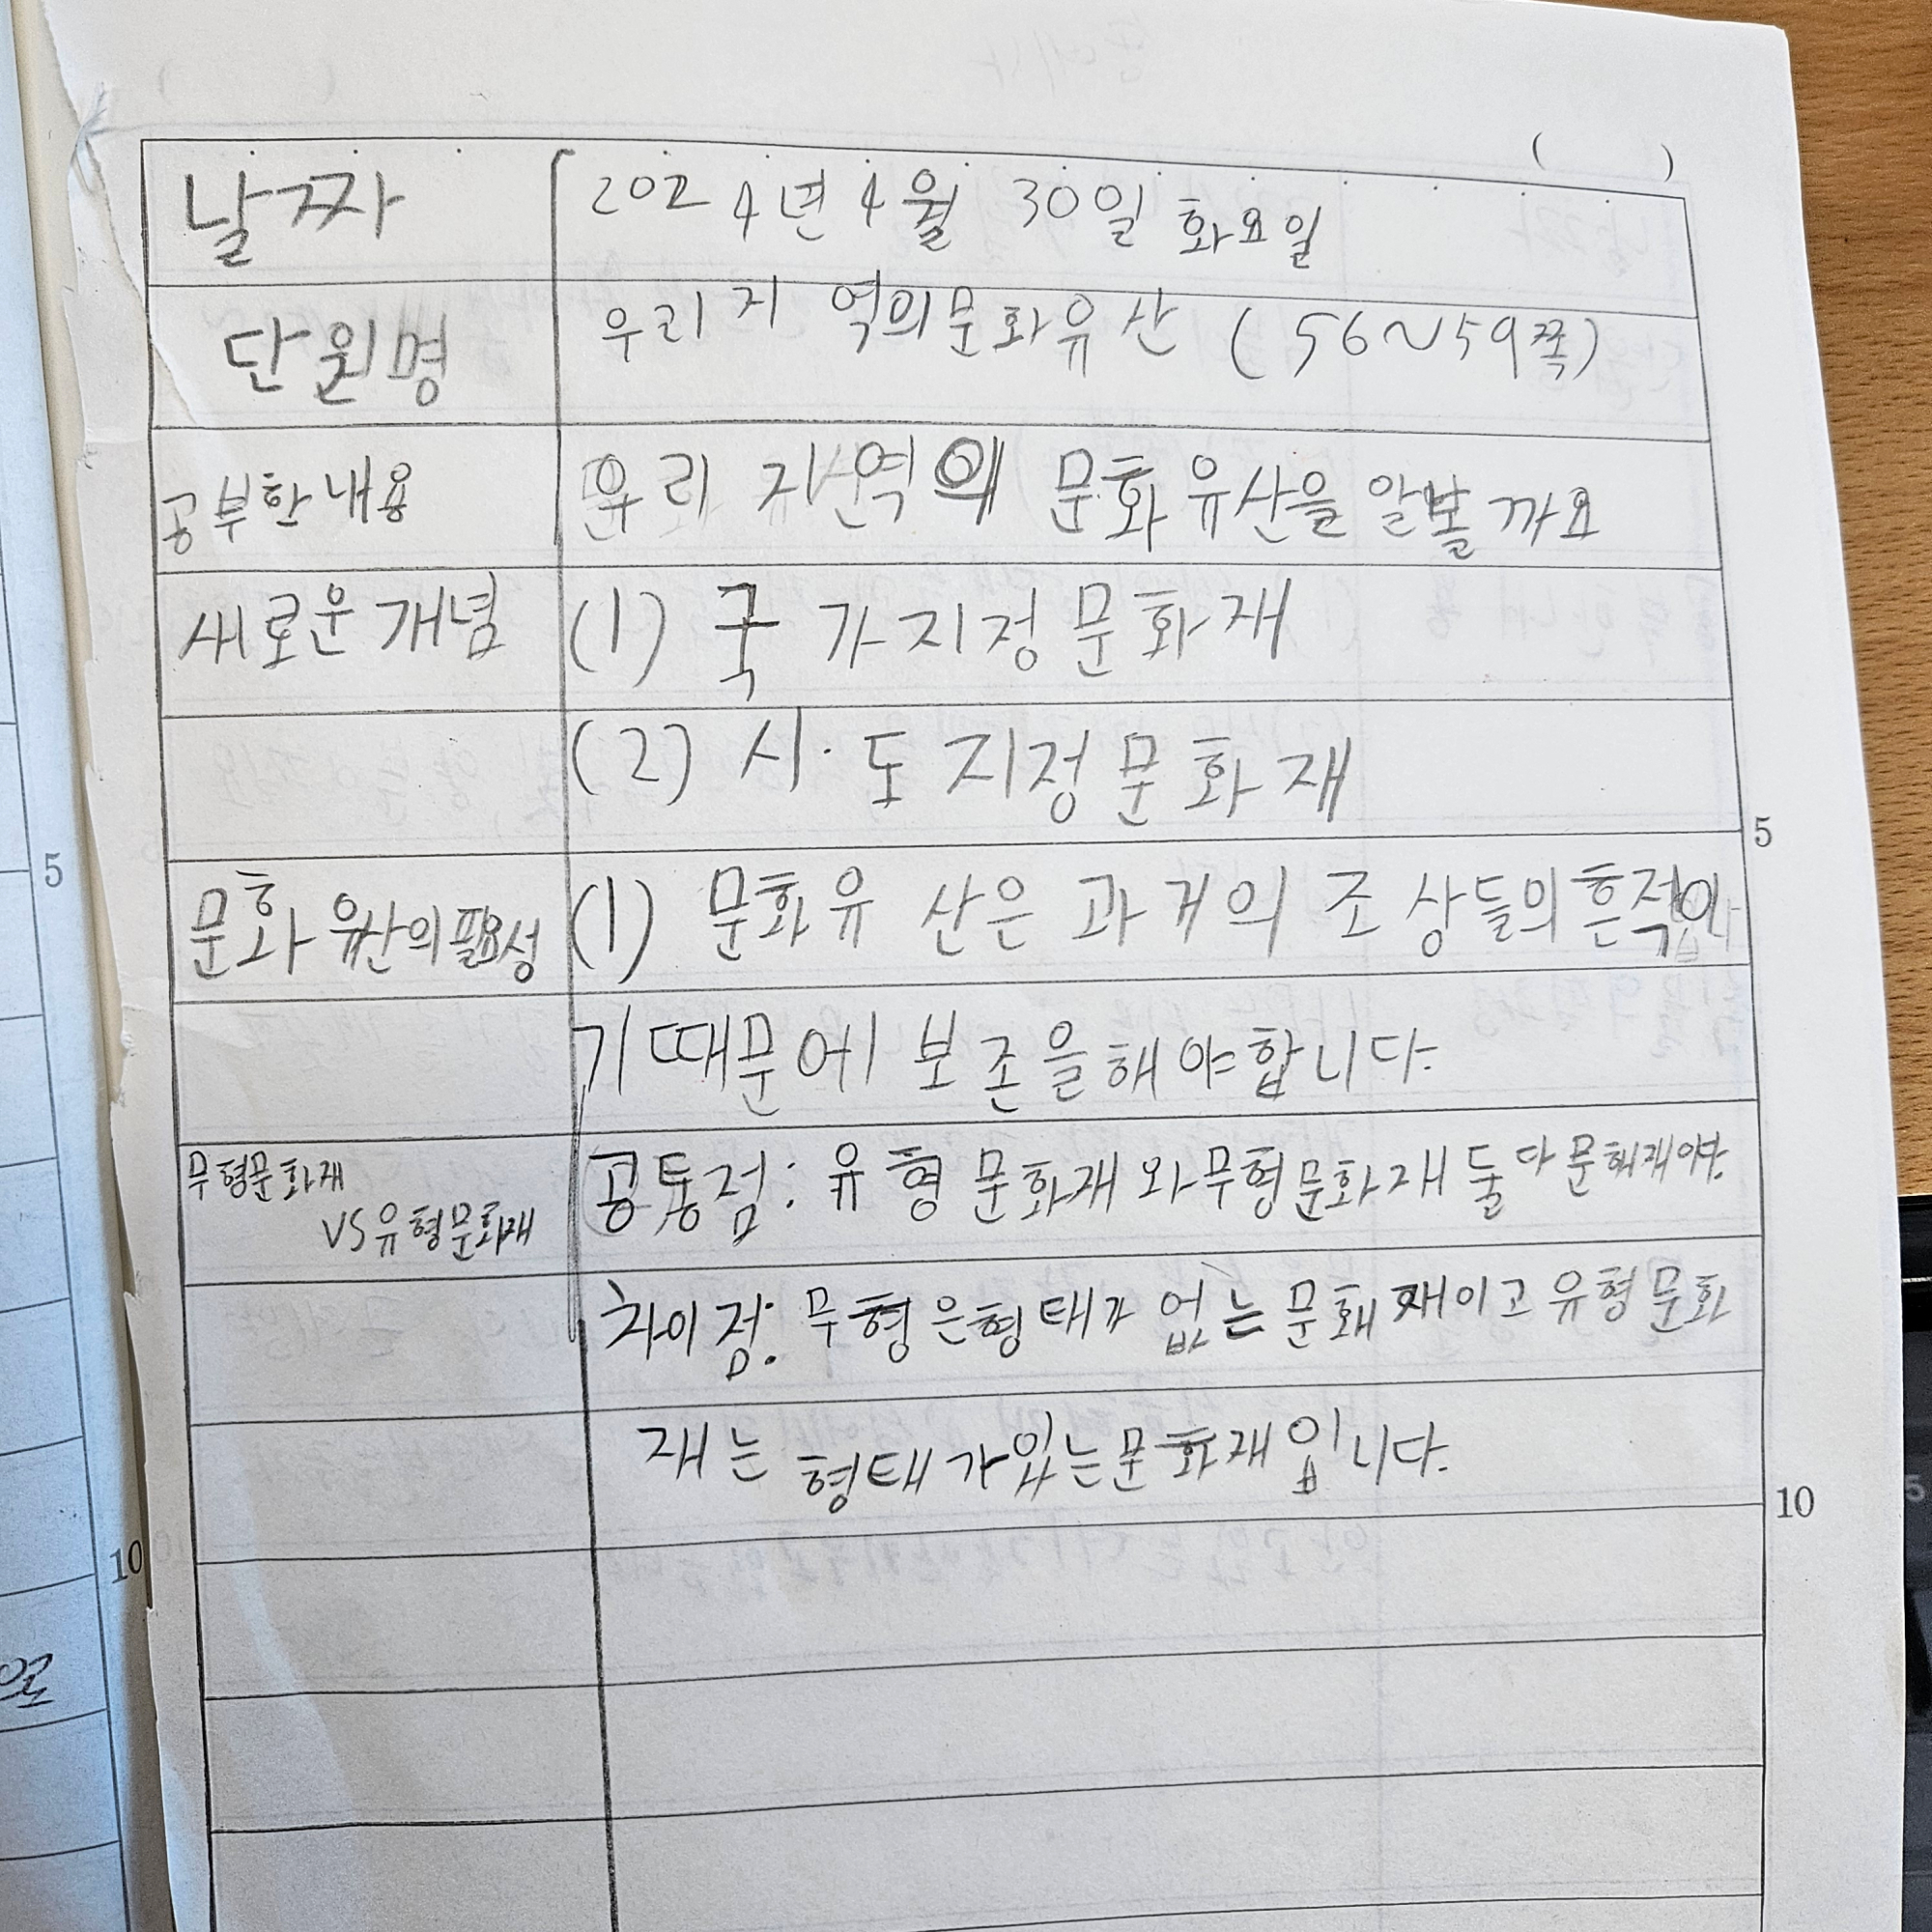 날짜 2024년 4월 30일 화요일
단원명 우리지역의문화유산 (56~59쪽)
공부한내용 우리 지역의 문화유산을 알볼까요
새로운 개념 (1) 국가지정문화재
(2) 시·도 지정문화재
문화유산의필요성 (1) 문화유산은 과거의 조상들의흔적이
기때문에 보존을해야합니다.
무형문화재
VS유형문화재
공통점: 유형문화재와무형문화재 둘다
차이점: 무형은형태가 없는 문화재이고 유형문화
재는 형태가있는문화재입니다.
5
10
5
10